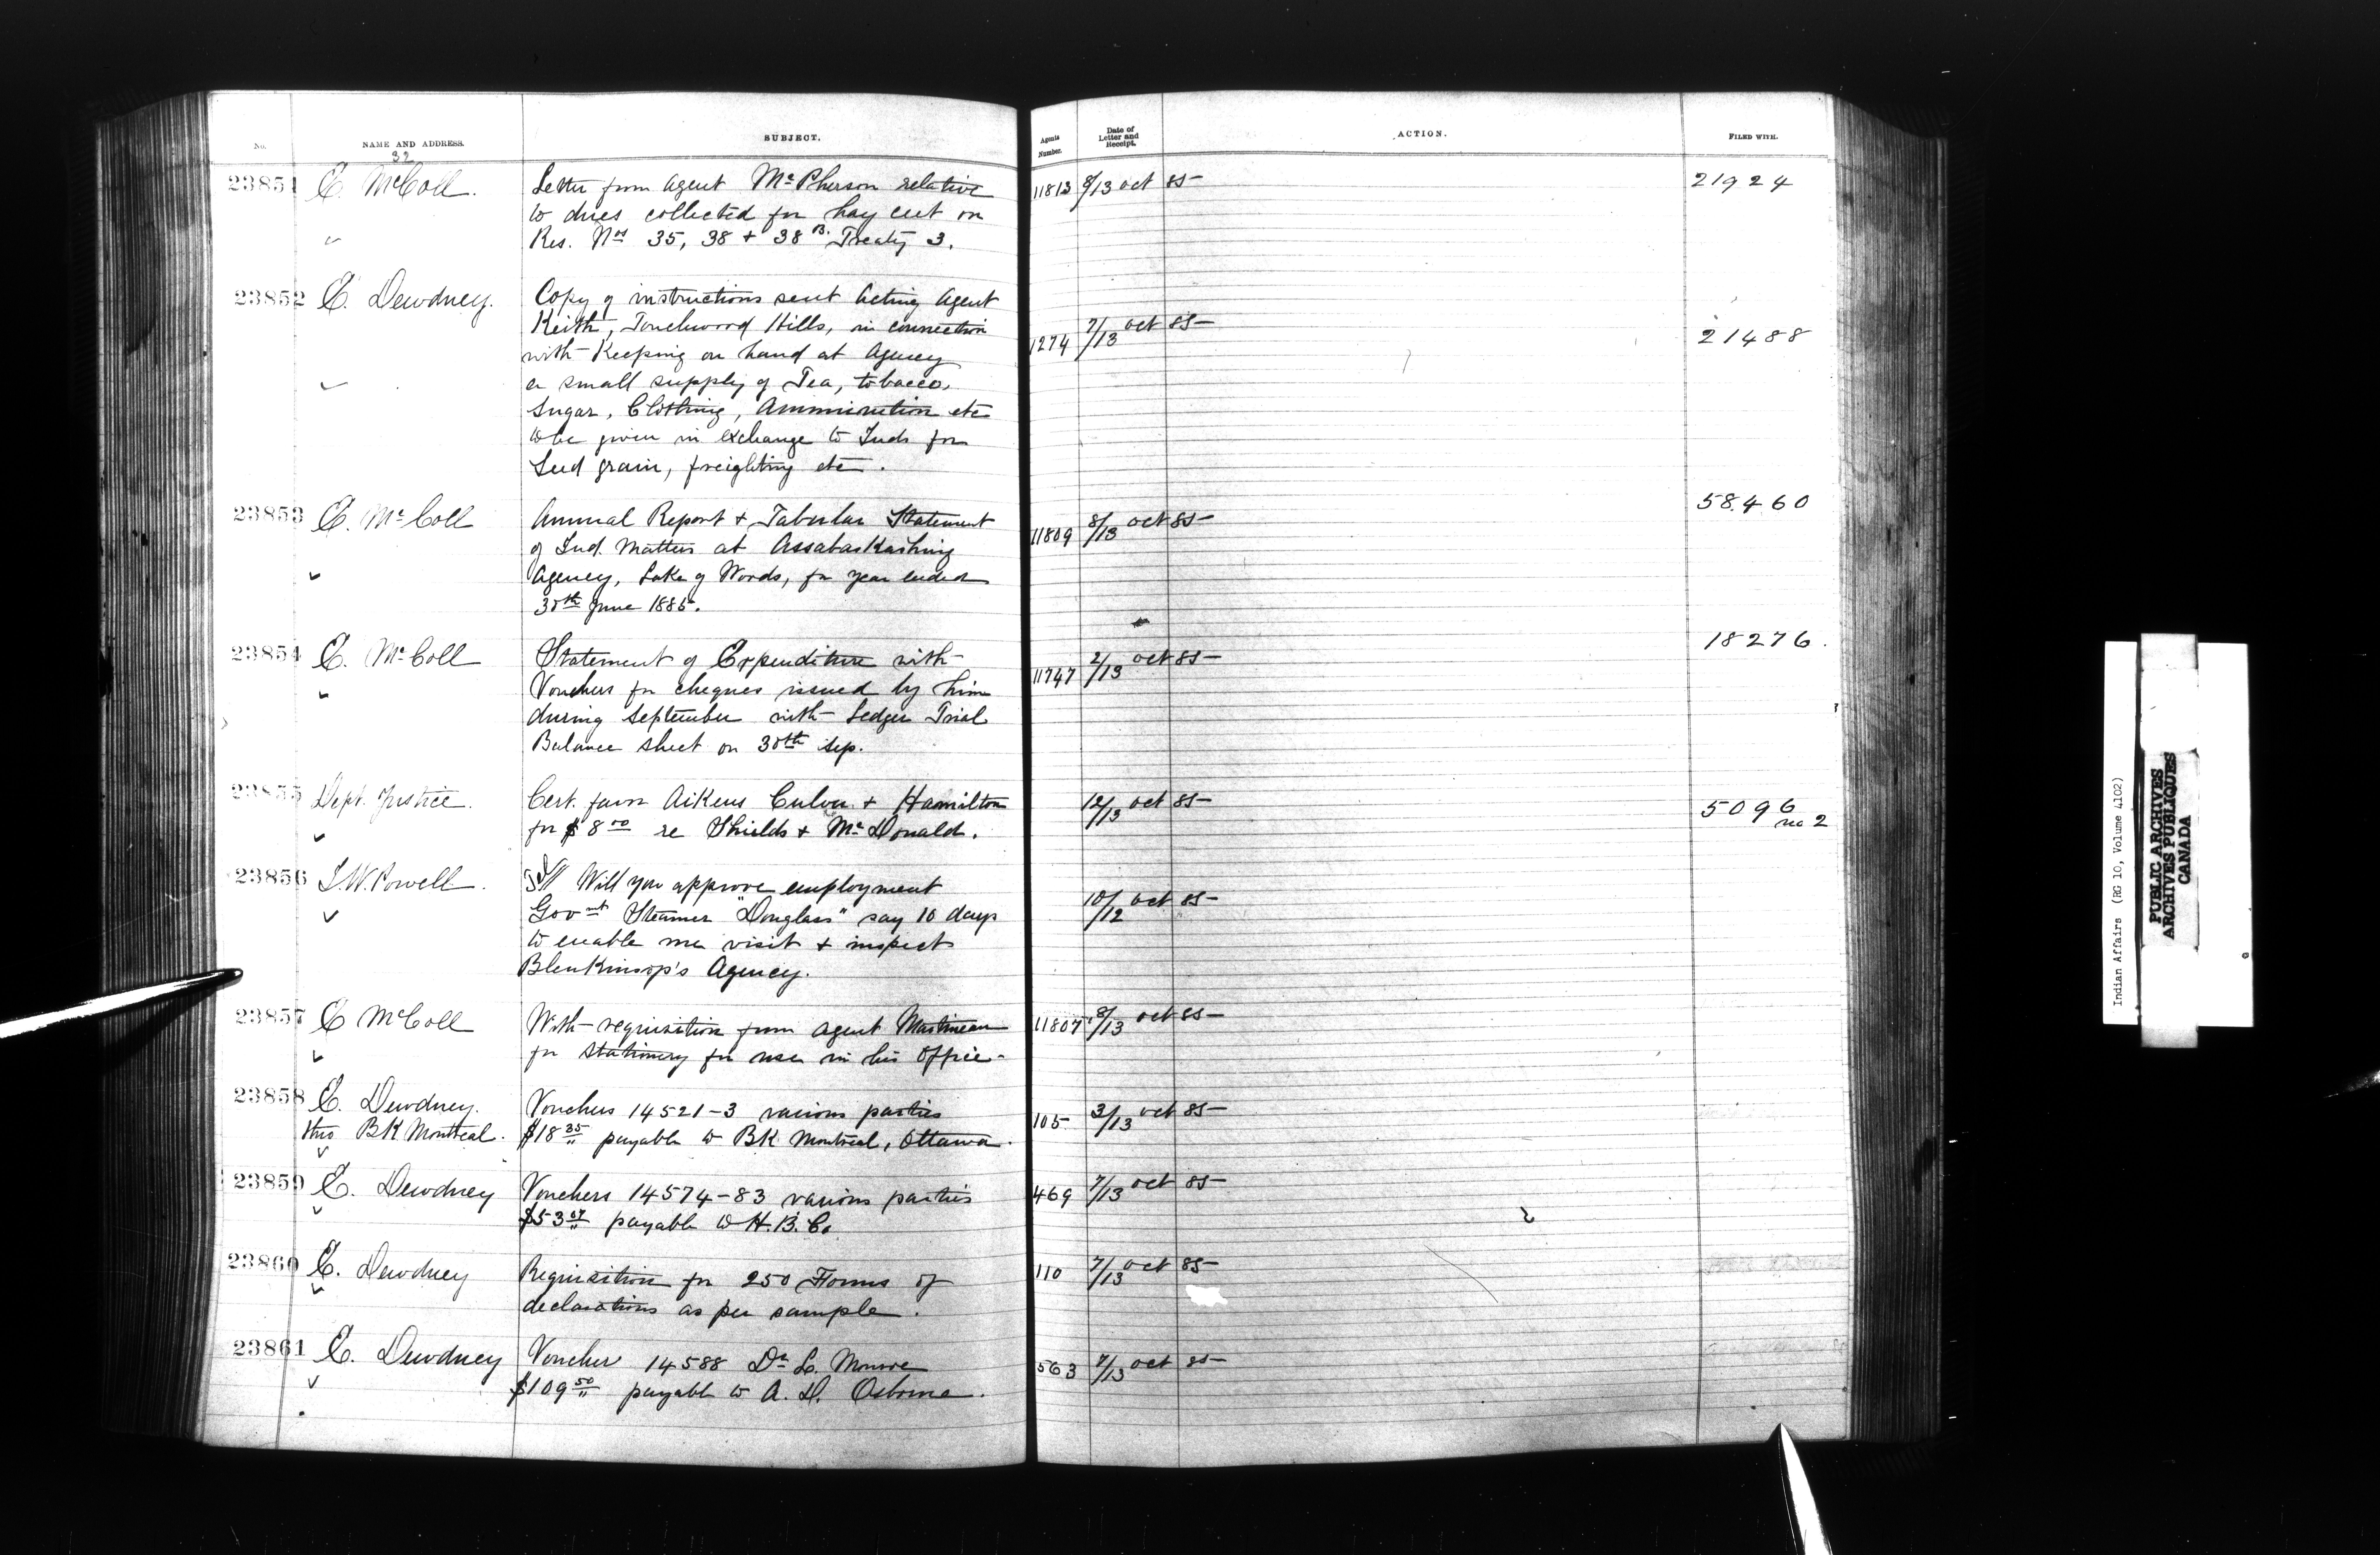 No. NAME AND ADDRESS. SUBJECT. Agents Number. Date of Letter and Receipt. ACTION. FILED WITH.
32
23851 E. McColl. Letter from Agent McPherson relative 11813 8/13 Oct 85 21924
to dues collected for hay cut on
Res. Nos 35, 38 + 38 B. Treaty 3.
23852 E. Dewdney. Copy of instructions sent Acting Agent
Keith, Touchwood Hills, in connection 1274 7/13 Oct 85 21488
with Keeping on hand at Agency
a small supply of Tea, tobacco,
Sugar, Clothing, Ammunition etc
to be given in exchange to Inds for
Seed grain, freighting etc.
23853 E. McColl Annual Report + Tabular Statement 11809 8/13 Oct 85 58460
of Ind. Matters at Assabaskashing
Agency, Lake of Woods, for year ended
30th June 1885.
23854 E. McColl Statement of Expenditure with 11747 2/13 Oct 85 18276.
Vouchers for cheques issued by him
during September with Ledger Trial
Balance sheet on 30th Sep.
23855 Dept. Justice. Cert. favor Aikens Culver + Hamilton 12/13 Oct 85 5096
for $8 00 re Shields + McDonald. no 2
23856 I.W. Powell. Will you approve employment
Govmnt Steamer "Douglass" say 10 days 10/12 Oct 85
to enable me visit + inspect
Blenkinsop's Agency.
23857 E McColl With requisition from Agent Martineau 11807 8/13 Oct 85
for stationery for use in his Office
23858 E. Dewdney. Vouchers 14521-3 various parties 105 3/13 Oct 85
thro BK Montreal. $18 35 payable to BK Montreal, Ottawa.
23859 E. Dewdney Vouchers 14574-83 various parties 469 7/13 Oct 85
$53 07 payable to H.B. Co.
23860 E. Dewdney Requisition for 250 Forms of 110 7/13 Oct 85
declarations as per sample.
23861 E. Dewdney Voucher 14588 Dr L. Monroe 563 7/13 Oct 85
$109 50 payable to A. D. Osborne.
Indian Affairs (RG 10, Volume 4102)
PUBLIC ARCHIVES
ARCHIVES PUBLIQUES
CANADA